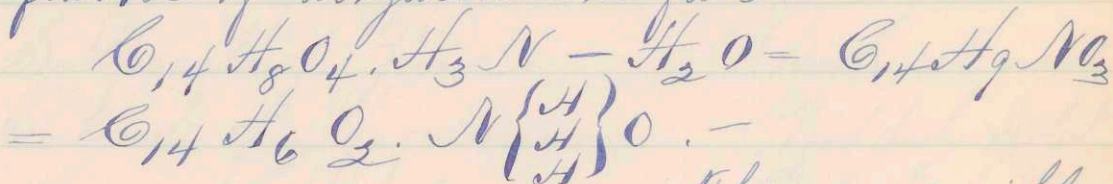 C14H8O4. H3N - H2O = C14H9NO3
= C14H6O2. N{H H H}O. -